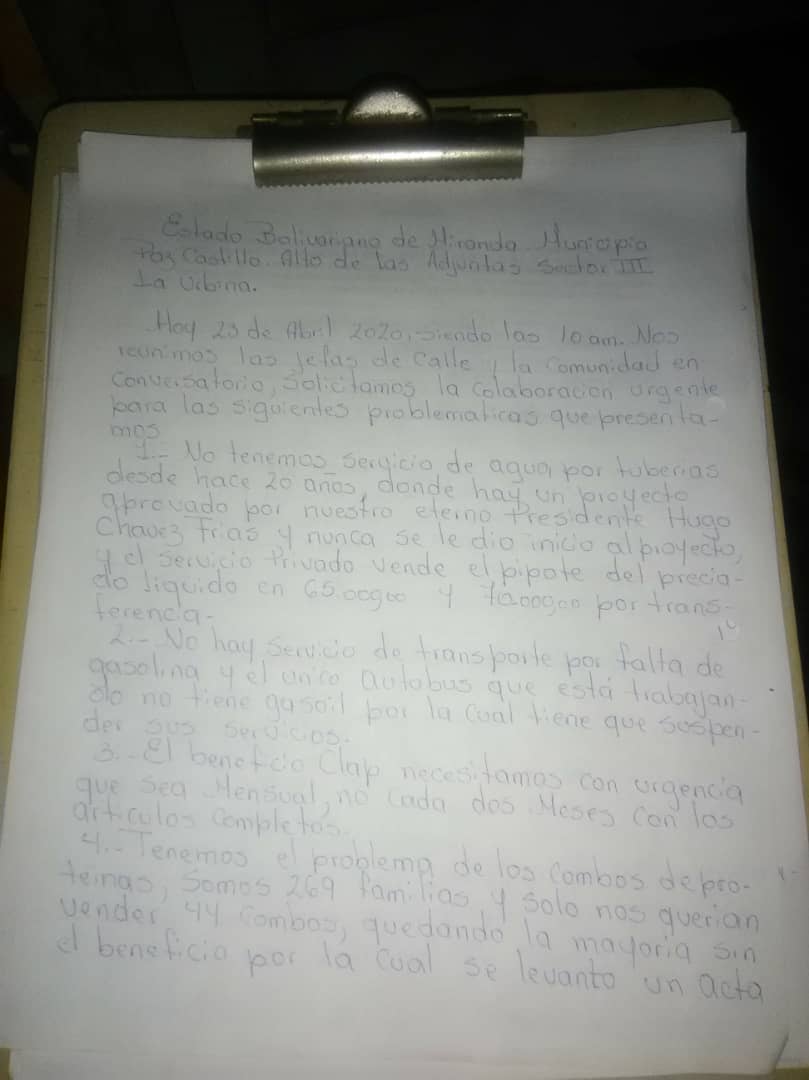 Estado Bolivariano de Miranda. Municipio
Paz Castillo. Alto de las Adjuntas Sector III
La Urbina.
Hoy 23 de Abril 2020, siendo las 10 am. Nos
reunimos las jefas de calle y la comunidad en
Conversatorio, Solicitamos la Colaboracion urgente
para las siguientes problematicas que presenta-
mos
1.- No tenemos servicio de agua por tuberias
desde hace 20 años, donde hay un proyecto
aprovado por nuestro eterno Presidente Hugo
Chavez Frias y nunca se le dio inicio al proyecto,
y el servicio Privado vende el pipote del precia-
do liquido en 65.000,00 y por trans-
ferencia.
2.- No hay Servicio de transporte por falta de
gasolina y el unico autobus que está trabajan-
do no tiene gasoil por la cual tiene que suspen-
der sus servicios.
3.- El beneficio Clap necesitamos con urgencia
que sea Mensual, no cada dos Meses con los
articulos Completos.
4.- Tenemos el problema de los combos de pro-
teinas, Somos 269 familias y solo nos querian
vender 44 Combos, quedando la mayoria sin
el beneficio por la cual se levanto un acta